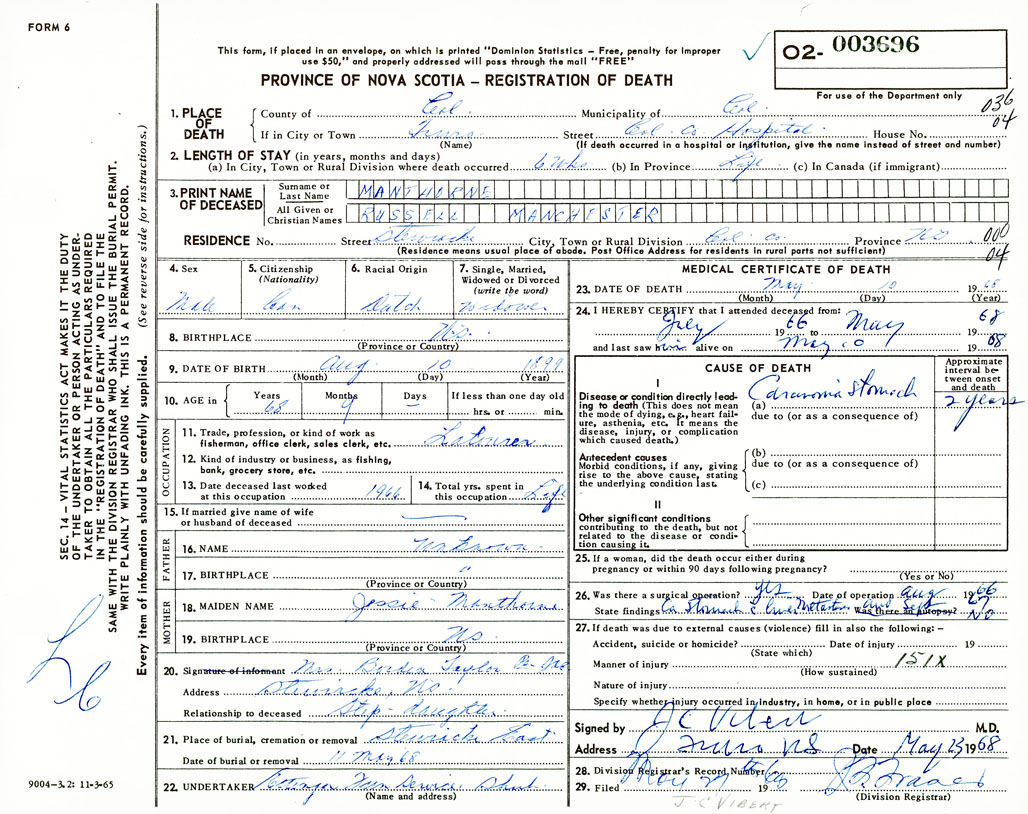 FORM 6
This form, if placed in an envelope, on which is printed "Dominion Statistics – Free, penalty for improper
use $50," and properly addressed will pass through the mail "FREE"
PROVINCE OF NOVA SCOTIA – REGISTRATION OF DEATH
O2- 003696
For use of the Department only
036
04
1. PLACE OF DEATH
County of Col. Municipality of Col.
If in City or Town Truro Street Col. Co. Hospital House No.
(Name) (If death occurred in a hospital or institution, give the name instead of street and number)
2. LENGTH OF STAY (in years, months and days)
(a) In City, Town or Rural Division where death occurred 6 Wks (b) In Province Life (c) In Canada (if immigrant)
3. PRINT NAME OF DECEASED
Surname or Last Name MANTHORNE
All Given or Christian Names RUSSELL MANCHESTER
RESIDENCE No. Street Stewiacke City, Town or Rural Division Col. Co. Province NS
(Residence means usual place of abode. Post Office Address for residents in rural parts not sufficient)
000
04
4. Sex
Male
5. Citizenship
(Nationality)
Can
6. Racial Origin
Dutch
7. Single, Married,
Widowed or Divorced
(write the word)
Widower
8. BIRTHPLACE NS.
(Province or Country)
9. DATE OF BIRTH Aug 10 1899
(Month) (Day) (Year)
10. AGE in
Years Months Days If less than one day old
68 9 – hrs. or min.
OCCUPATION
11. Trade, profession, or kind of work as
fishermen, office clerk, sales clerk, etc. Labourer
12. Kind of industry or business, as fishing,
bank, grocery store, etc.
13. Date deceased last worked
at this occupation 1966
14. Total yrs. spent in
this occupation Life
15. If married give name of wife
or husband of deceased —
FATHER
16. NAME Unknown
17. BIRTHPLACE "
(Province or Country)
MOTHER
18. MAIDEN NAME Jessie Manthorne
19. BIRTHPLACE NS
(Province or Country)
20. Signature of informant Mrs. Taylor
Address Stewiacke, NS.
Relationship to deceased Step-daughter
21. Place of burial, cremation or removal Stewiacke East
Date of burial or removal 11 May 68
22. UNDERTAKER
(Name and address)
MEDICAL CERTIFICATE OF DEATH
23. DATE OF DEATH May 10 1968
(Month) (Day) (Year)
24. I HEREBY CERTIFY that I attended deceased from:
July 1966 to May 1968
and last saw him alive on May 10 1968
CAUSE OF DEATH
Approximate interval between onset and death
I
Disease or condition directly leading to death (This does not mean the mode of dying, e.g., heart failure, asthenia, etc. It means the disease, injury, or complication which caused death.)
(a) Carcinoma Stomach 2 years
due to (or as a consequence of)
Antecedent causes
Morbid conditions, if any, giving rise to the above cause, stating the underlying condition last.
(b)
due to (or as a consequence of)
(c)
II
Other significant conditions
contributing to the death, but not related to the disease or condition causing it.
25. If a woman, did the death occur either during
pregnancy or within 90 days following pregnancy?
(Yes or No)
26. Was there a surgical operation? yes Date of operation Aug 1966
State findings Ca Stomach & Liver Metastases and Sept 67 Was there an autopsy? NO
27. If death was due to external causes (violence) fill in also the following: –
Accident, suicide or homicide? Date of injury 19
(State which)
Manner of injury 151X
(How sustained)
Nature of injury
Specify whether injury occurred in industry, in home, or in public place
Signed by J C Vibert M.D.
Address Truro NS Date May 23 1968
28. Division Registrar's Record Number
29. Filed 19
(Division Registrar)
J. C VIBERT
SEC. 14 – VITAL STATISTICS ACT MAKES IT THE DUTY
OF THE UNDERTAKER OR PERSON ACTING AS UNDER-
TAKER TO OBTAIN ALL THE PARTICULARS REQUIRED
IN THE "REGISTRATION OF DEATH" AND TO FILE THE
SAME WITH THE DIVISION REGISTRAR WHO SHALL ISSUE THE BURIAL PERMIT.
WRITE PLAINLY WITH UNFADING INK. THIS IS A PERMANENT RECORD.
Every item of information should be carefully supplied. (See reverse side for instructions.)
9004–3.2: 11-3-65